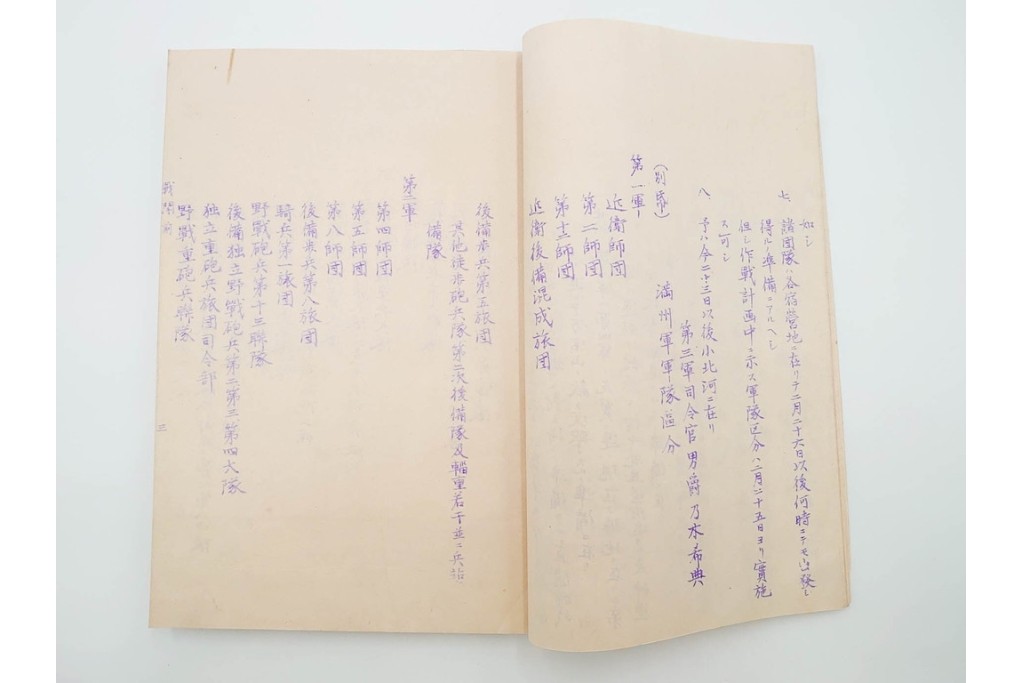 如シ
七、諸団隊ハ各宿営地ニ在リテ二月二十六日以後何時ニテモ出発シ
得ルノ準備ニアルヘシ
但シ作戦計画中ニ示ス軍隊区分ハ二月二十五日ヨリ實施
ス可シ
八、予ハ今二十三日以後小北河ニ在リ
第三軍司令官男爵乃木希典
満州軍軍隊區分
(別紙)
第一軍
近衛師団
第二師団
第十二師団
近衛後備混成旅団
後備歩兵第五旅団
其他徒歩砲兵隊第二次後備隊及輜重若干並ニ兵站
備隊
第二軍
第四師団
第五師団
第八師団
後備歩兵第八旅団
騎兵第一旅団
野戰砲兵第十三聯隊
後備独立野戰砲兵第二第三第四大隊
独立重砲兵旅団司令部
野戰重砲兵聯隊
三